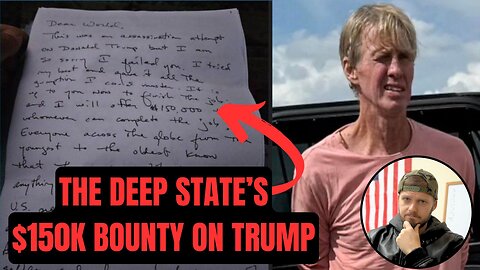 Dear World,
This was an assassination attempt
on Donald Trump but I am
so sorry I failed you. I tried
my best and gave it all the
gumption I could muster. It is
up to you now to finish the job
and I will offer $150,000 to
whomever can complete the job
Everyone across the globe from the
youngest to the oldest know
that
anything
U.S.
THE DEEP STATE'S
$150K BOUNTY ON TRUMP